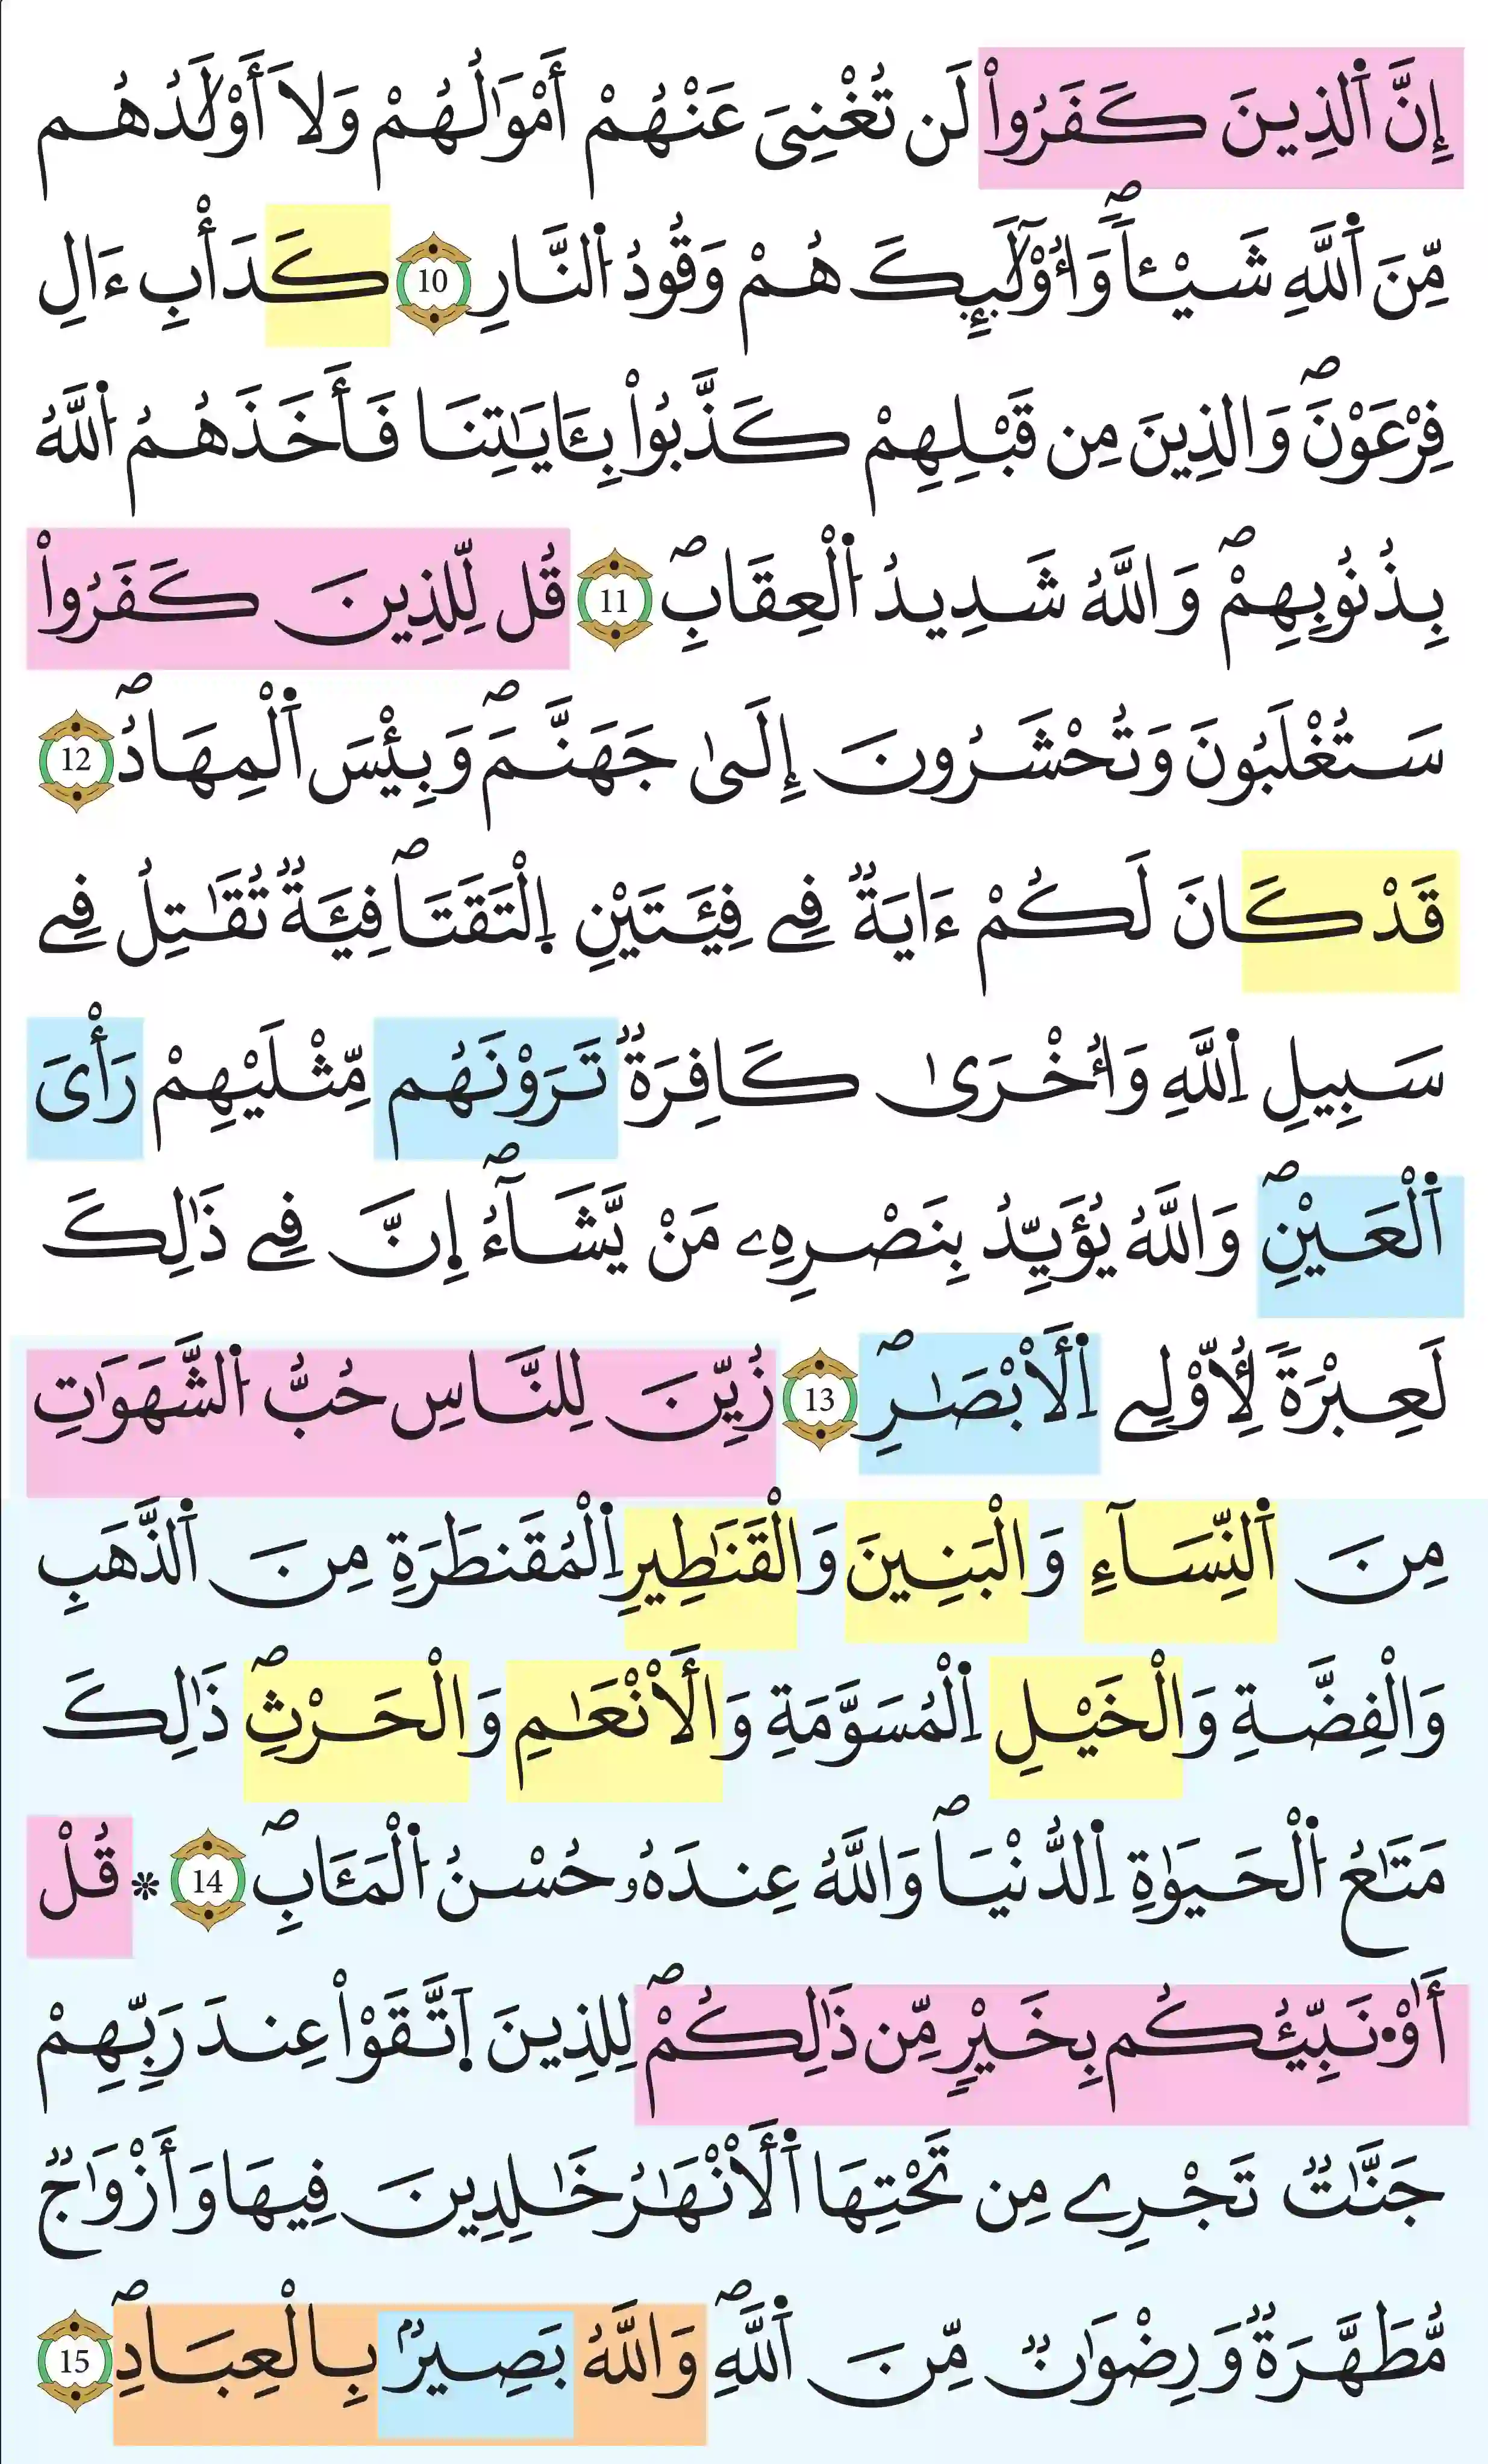 إِنَّ اَ۬لذِينَ كَفَرُواْ لَن تُغْنِيَ عَنْهُمْ أَمْوَٰلُهُمْ وَلَا أَوْلَٰدُهُم
مِّنَ اَ۬للَّهِ شَيْـٔاٗۖ وَأُوْلَٰٓئِكَ هُمْ وَقُودُ اُ۬لنَّارِ 10 كَدَأْبِ ءَالِ
فِرْعَوْنَۖ وَالذِينَ مِن قَبْلِهِمْ كَذَّبُواْ بِـَٔايَٰتِنَا فَأَخَذَهُمُ اُ۬للَّهُ
بِذُنُوبِهِمْۖ وَاللَّهُ شَدِيدُ اُ۬لْعِقَابِۖ 11 قُل لِّلذِينَ كَفَرُواْ
سَتُغْلَبُونَ وَتُحْشَرُونَ إِلَىٰ جَهَنَّمَۖ وَبِئْسَ اَ۬لْمِهَادُۖ 12
قَدْ كَانَ لَكُمْ ءَايَةٞ فِے فِئَتَيْنِ اِ۪لْتَقَتَاۖ فِئَةٞ تُقَٰتِلُ فِے
سَبِيلِ اِ۬للَّهِ وَأُخْرَىٰ كَافِرَةٞ تَرَوْنَهُم مِّثْلَيْهِمْ رَأْيَ
اَ۬لْعَيْنِۖ وَاللَّهُ يُؤَيِّدُ بِنَصْرِهِۦ مَنْ يَّشَآءُۖ إِنَّ فِے ذَٰلِكَ
لَعِبْرَةٗ لِّأُوْلِے اِ۬لْأَبْصَٰرِۖ 13 زُيِّنَ لِلنَّاسِ حُبُّ اُ۬لشَّهَوَٰتِ
مِنَ اَ۬لنِّسَآءِ وَالْبَنِينَ وَالْقَنَٰطِيرِ اِ۬لْمُقَنطَرَةِ مِنَ اَ۬لذَّهَبِ
وَالْفِضَّةِ وَالْخَيْلِ اِ۬لْمُسَوَّمَةِ وَالْأَنْعَٰمِ وَالْحَرْثِۖ ذَٰلِكَ
مَتَٰعُ اُ۬لْحَيَوٰةِ اِ۬لدُّنْيَاۖ وَاللَّهُ عِندَهُۥ حُسْنُ اُ۬لْمَـَٔابِۖ 14 * قُلْ
أَو۟نَبِّئُكُم بِخَيْرٖ مِّن ذَٰلِكُمْۖ لِلذِينَ اَ۪تَّقَوْاْ عِندَ رَبِّهِمْ
جَنَّٰتٞ تَجْرِے مِن تَحْتِهَا اَ۬لْأَنْهَٰرُ خَٰلِدِينَ فِيهَا وَأَزْوَٰجٞ
مُّطَهَّرَةٞ وَرِضْوَٰنٞ مِّنَ اَ۬للَّهِۖ وَاللَّهُ بَصِيرُۢ بِالْعِبَادِۖ 15